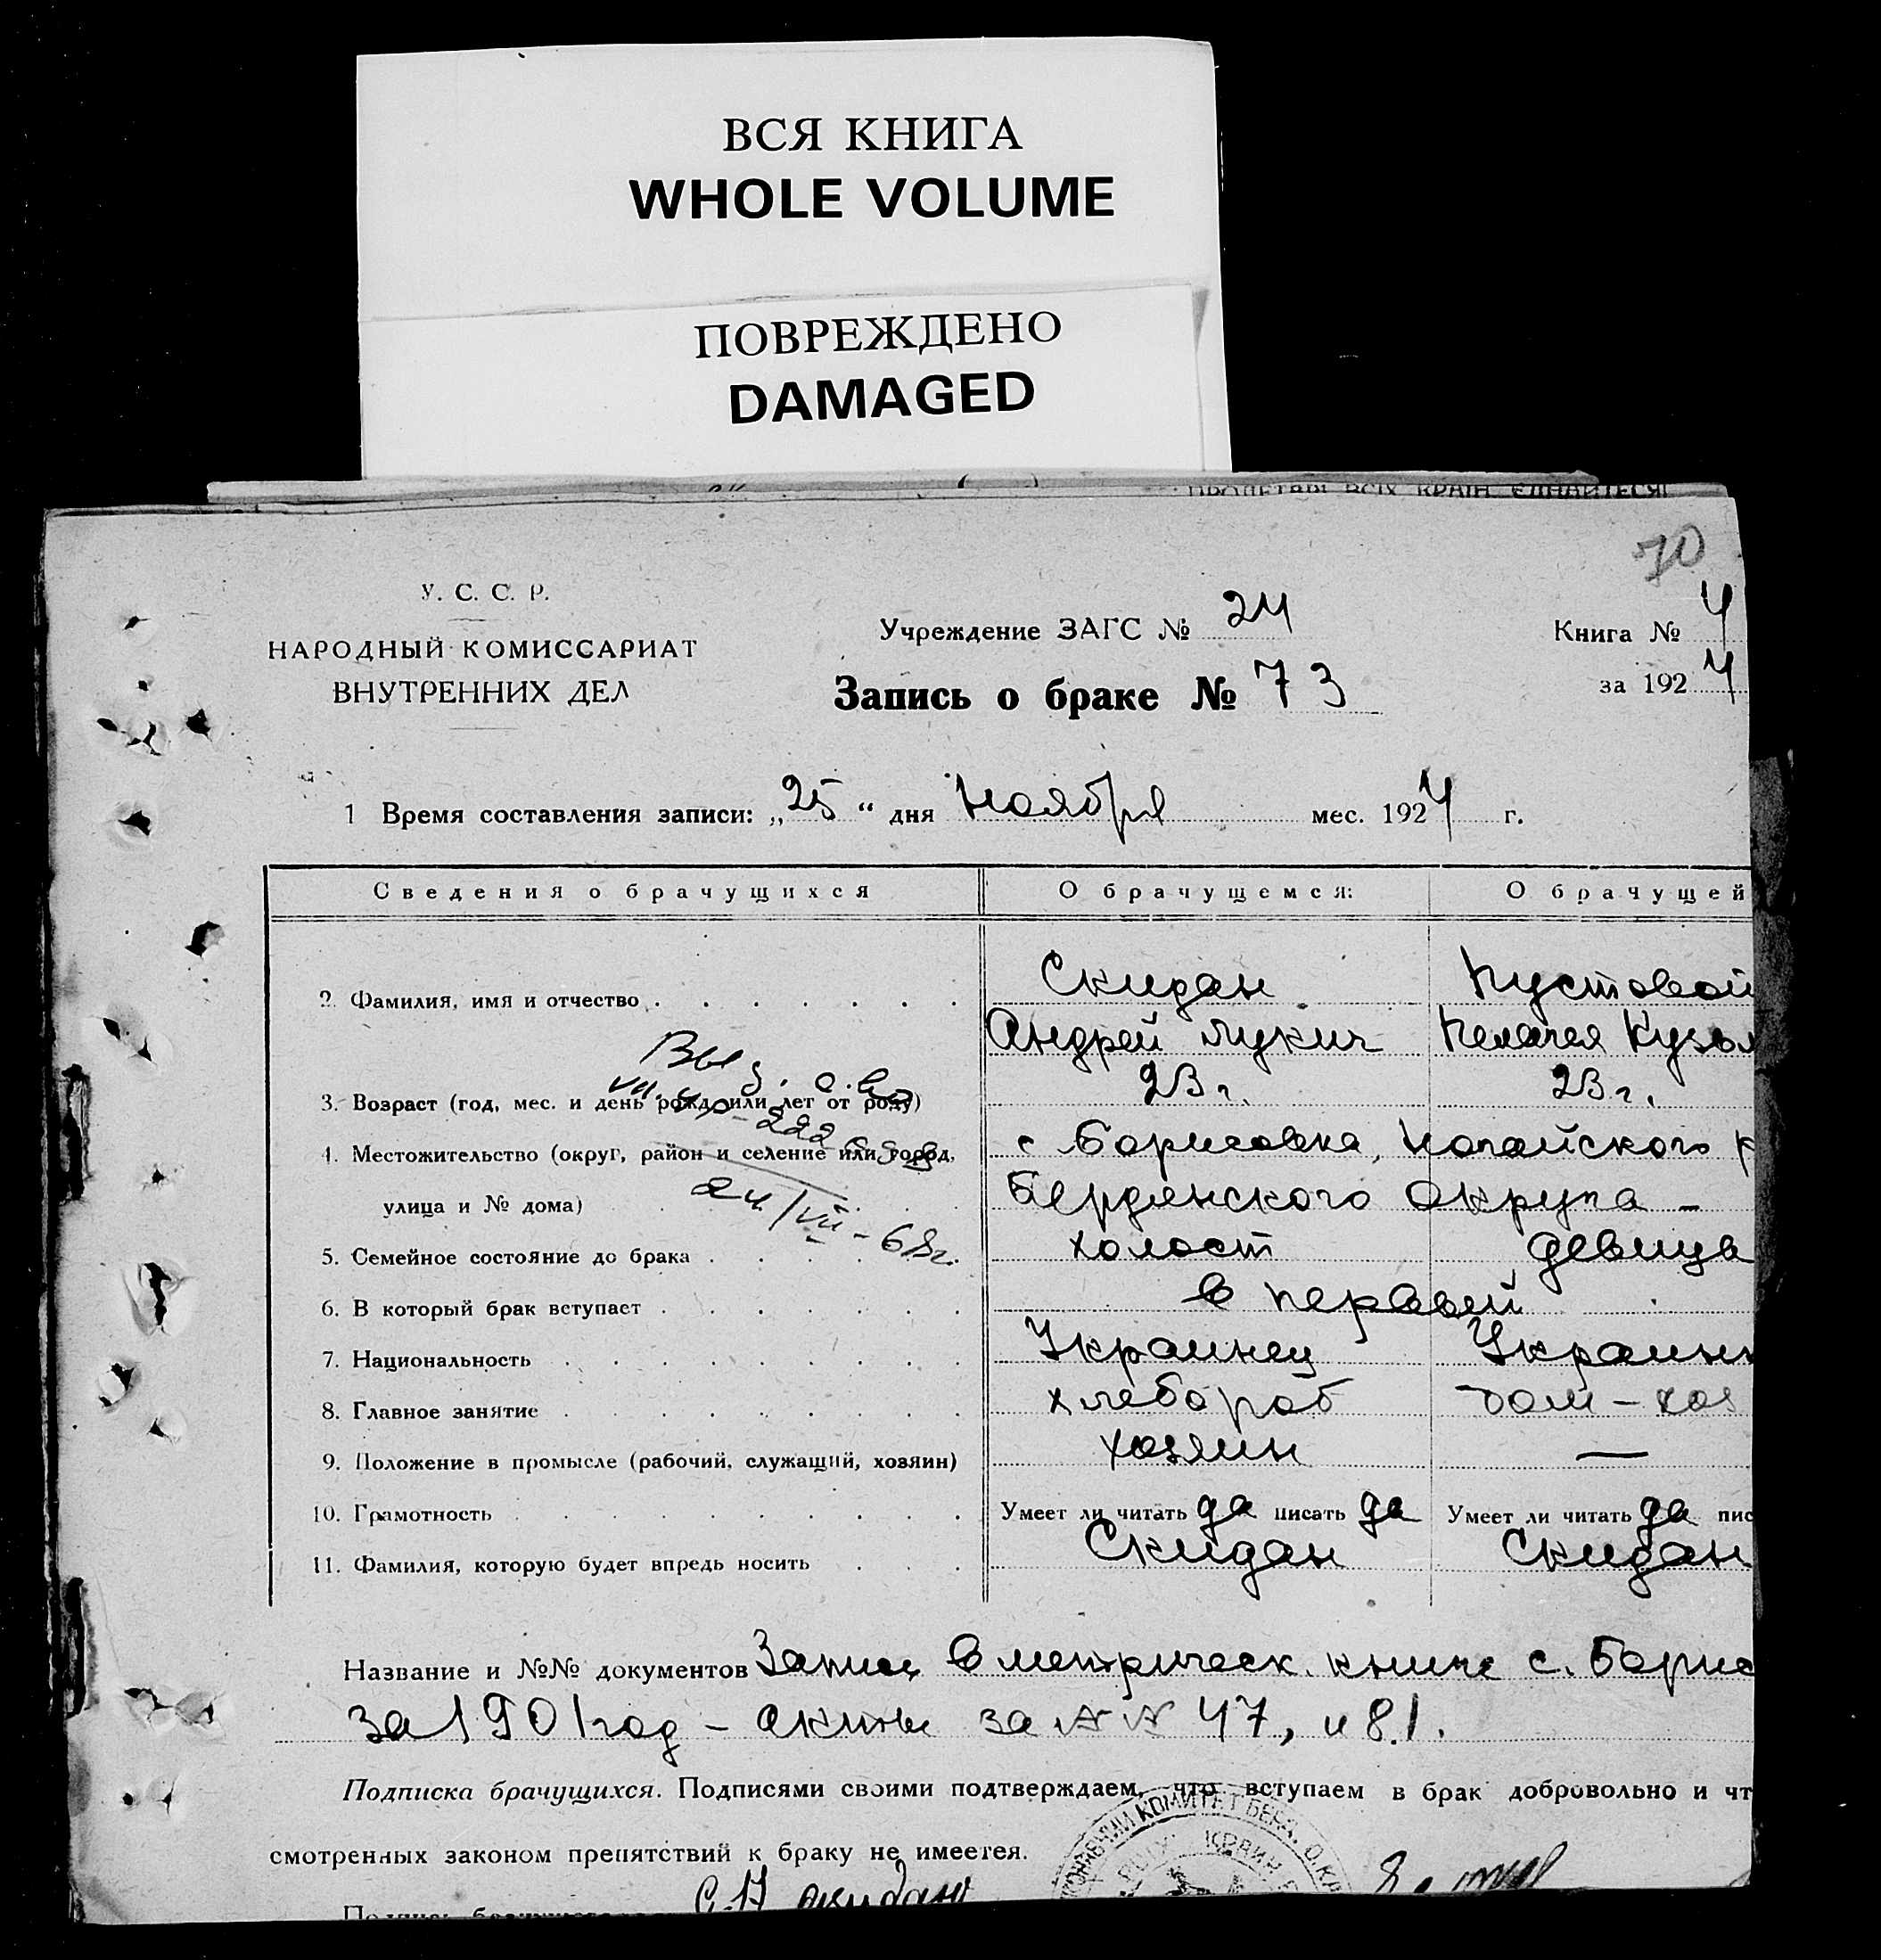 ВСЯ КНИГА
WHOLE VOLUME
ПОВРЕЖДЕНО
DAMAGED
ПРОЛЕТАРІ ВСІХ КРАЇН, ЄДНАЙТЕСЯ!
70
У. С. С. Р.
НАРОДНЫЙ КОМИССАРИАТ
ВНУТРЕННИХ ДЕЛ
Учреждение ЗАГС № 24
Книга № 4
Запись о браке № 73
за 1924
1 Время составления записи: „25“ дня Ноября мес. 1924 г.
Сведения о брачущихся О брачущемся: О брачущей
2. Фамилия, имя и отчество Скидан Пустовой
Андрей Лукич Пелагея Кузьм
3. Возраст (год, мес. и день рожд. или лет от роду) 23 г. 23 г.
4. Местожительство (округ, район и селение или город, с Борисовка, Ногайского р
улица и № дома) Бердянского округа -
24/VII - 68г.
5. Семейное состояние до брака холост девица
6. В который брак вступает в первый
7. Национальность Украинец Украин
8. Главное занятие хлебороб дом - хоз
9. Положение в промысле (рабочий, служащий, хозяин) хозяин —
10. Грамотность Умеет ли читать да писать да Умеет ли читать да пис
11. Фамилия, которую будет впредь носить Скидан Скидан
Название и №№ документов Записи в метрическ. книге с. Борис
за 1901 год - акты за №№ 47, и 81.
Подписка брачущихся. Подписями своими подтверждаем, что вступаем в брак добровольно и чт
смотренных законом препятствий к браку не имеется.
КОМИТЕТ БЕРД. ОК
КРАИН
Скидан